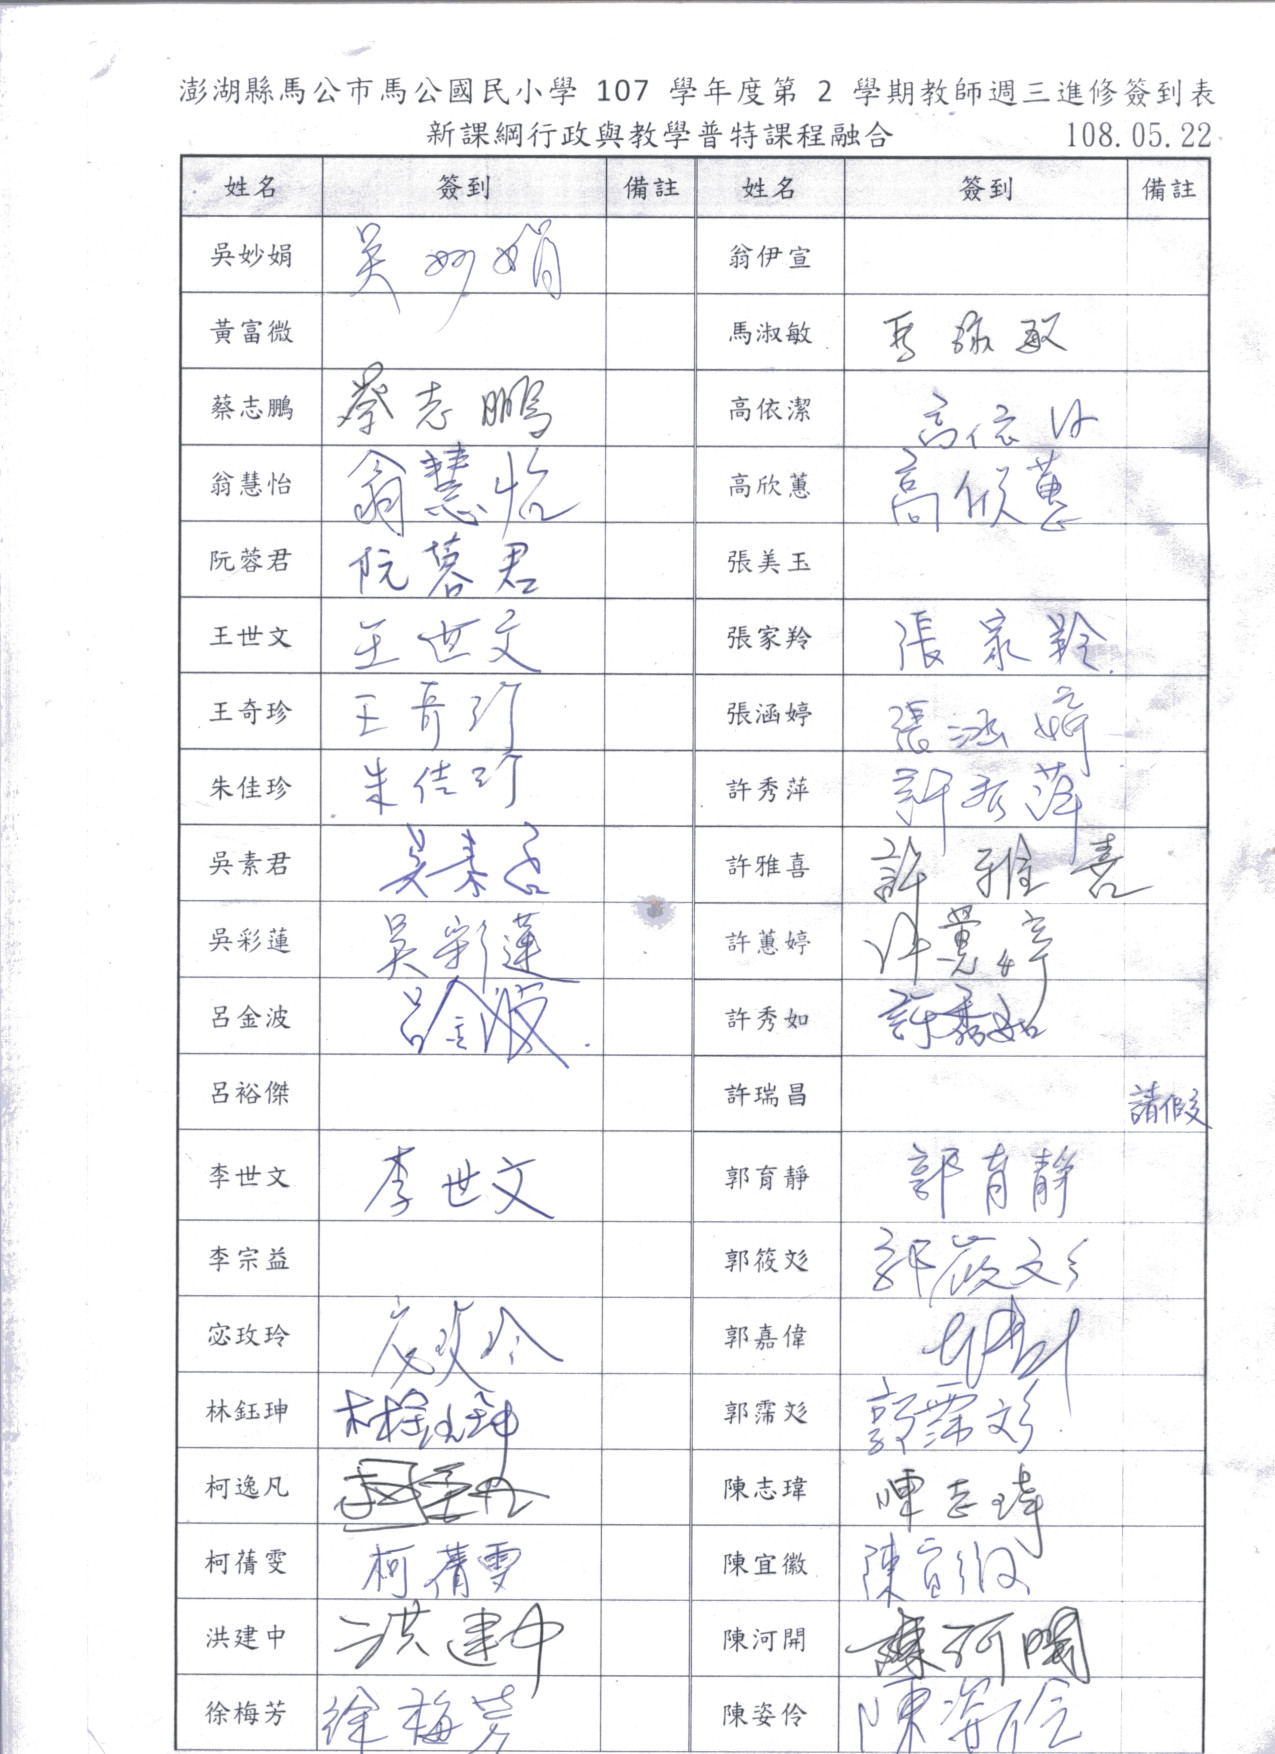 澎湖縣馬公市馬公國民小學 107 學年度第 2 學期教師週三進修簽到表
新課綱行政與教學普特課程融合 108.05.22
姓名 簽到 備註 姓名 簽到 備註
吳妙娟 吳妙娟 翁伊宣
黃富微 馬淑敏 馬淑敏
蔡志鵬 蔡志鵬 高依潔 高依
翁慧怡 翁慧怡 高欣蕙 高欣蕙
阮蓉君 阮蓉君 張美玉
王世文 王世文 張家羚 張家羚
王奇珍 王奇珍 張涵婷 張涵婷
朱佳珍 朱佳珍 許秀萍 許秀萍
吳素君 吳素君 許雅喜 許雅喜
吳彩蓮 吳彩蓮 許蕙婷 許蕙婷
呂金波 呂金波 許秀如 許秀如
呂裕傑 許瑞昌 請假
李世文 李世文 郭育靜 郭育靜
李宗益 郭筱彣 郭筱彣
宓玫玲 宓玫玲 郭嘉偉
林鈺珅 林鈺珅 郭霈彣 郭霈彣
柯逸凡 陳志瑋 陳志瑋
柯蒨雯 柯蒨雯 陳宜徽 陳宜徽
洪建中 洪建中 陳河開 陳河開
徐梅芳 徐梅芳 陳姿伶 陳姿伶